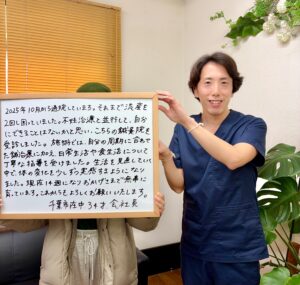 2025年10月から通院しています。それまで流産を
2回し困っていました。不妊治療と並行して、自分
にできることはないかと思い、こちらの鍼灸院を
受診しました。施術では、自分の周期に合わせ
た鍼治療に加え、日常生活や食生活について
丁寧な指導を受けました。生活を見直していく
中で、体の変化を少しずつ実感するようになり
ました。現在14週になりおかげさまで無事に
育っています。これからもよろしくお願いいたします。
千葉市在中 34才 会社員